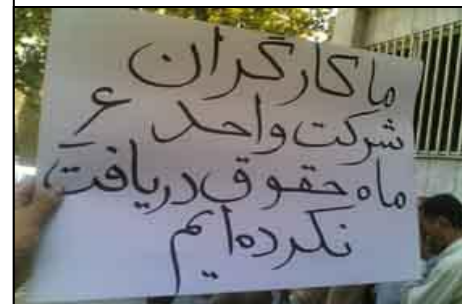 ما کارگران
شرکت واحد ۶
ماه حقوق دریافت
نکرده ایم